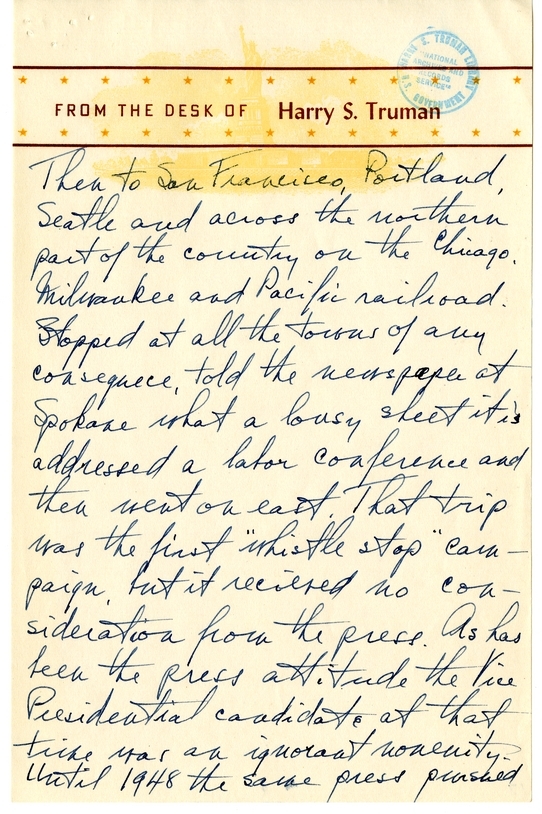 HARRY S. TRUMAN LIBRARY
NATIONAL
ARCHIVES AND
RECORDS
SERVICE
U.S. GOVERNMENT
FROM THE DESK OF Harry S. Truman
Then to San Francisco, Portland,
Seatle and across the northern
part of the country on the Chicago,
Milwaukee and Pacific railroad.
Stopped at all the towns of any
consequece, told the newspaper at
Spokane what a lousy sheet it is
addressed a labor conference and
then went on east. That trip
was the first "whistle stop" cam-
paign, but it recieved no con-
sideration from the press. As has
been the press attitude the Vice
Presidential candidate at that
time was an ignorant nonenity.
Until 1948 the same press pursued